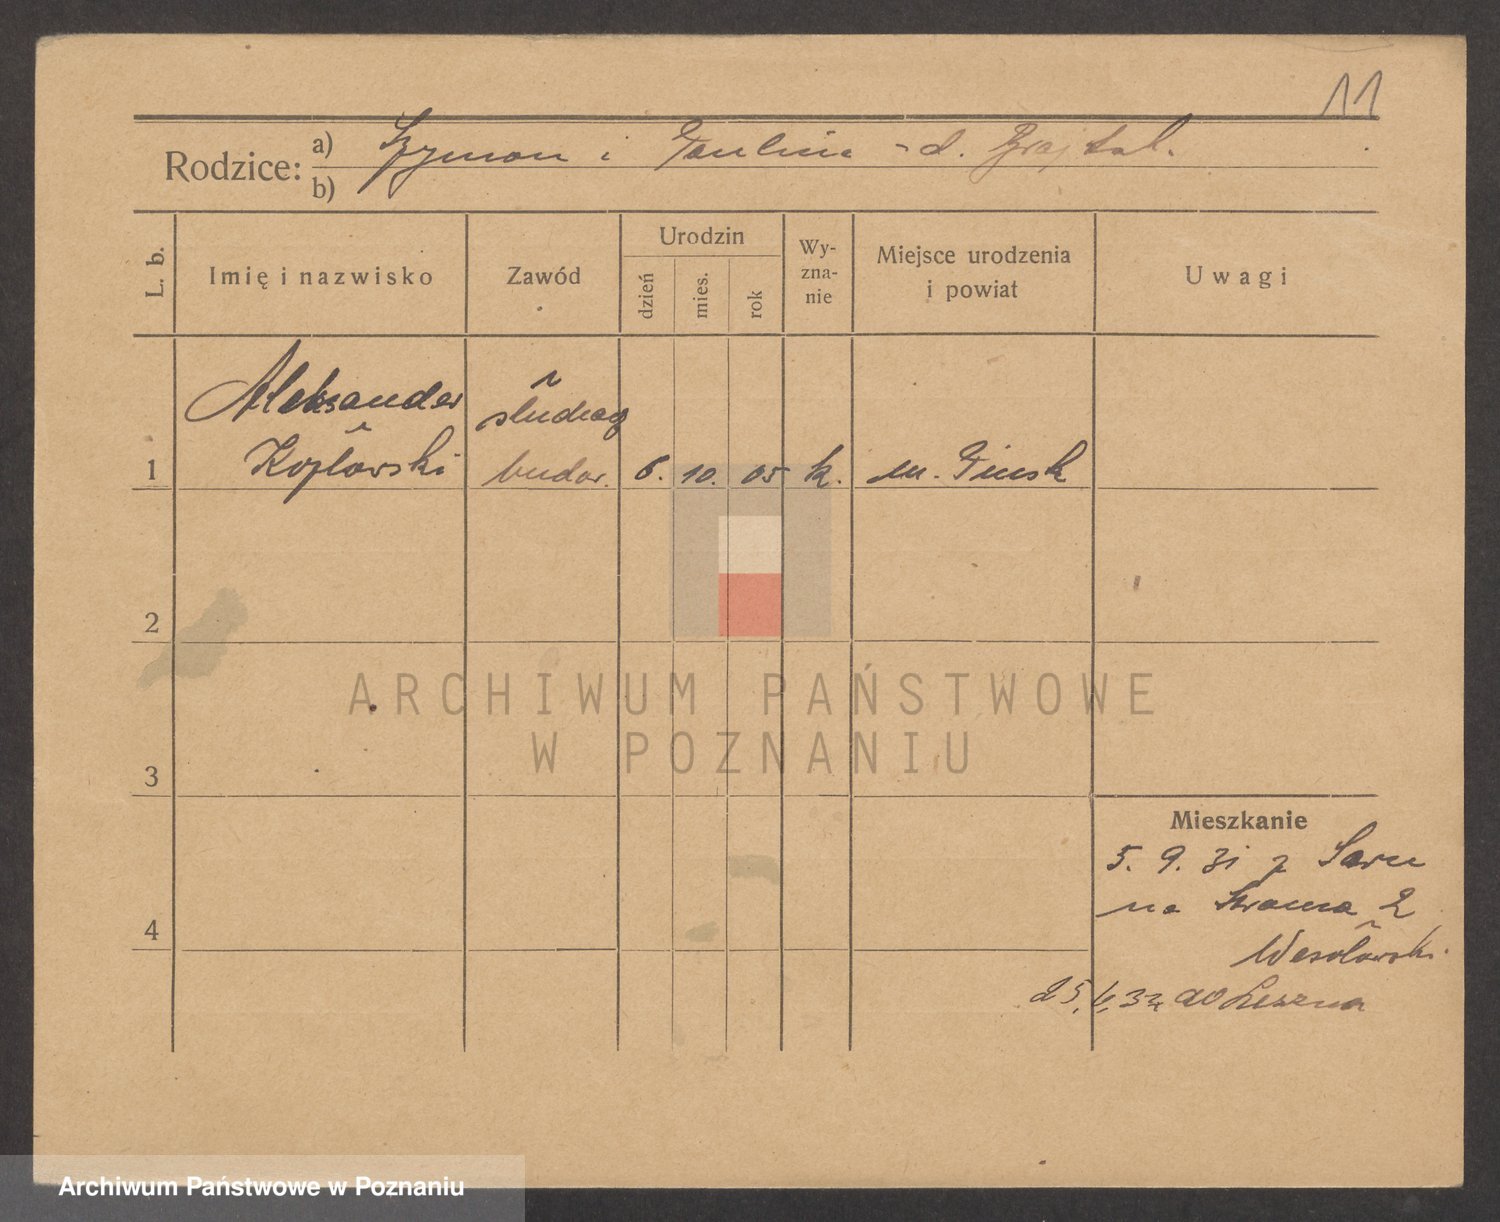 11
Rodzice: a) Szymon i Paulina - d.
b)
L. b. Imię i nazwisko Zawód Urodzin dzień mies. rok Wy-zna-nie Miejsce urodzenia i powiat Uwagi
Aleksander
Kozłowski budow.
1 6. 10. 05 k. m. Pinsk
2
ARCHIWUM PAŃSTWOWE
W POZNANIU
3
Mieszkanie
5. 9. 31 z Sarn
na 2
4
Wesołowski
25, 6, 32 do Leszna
Archiwum Państwowe w Poznaniu